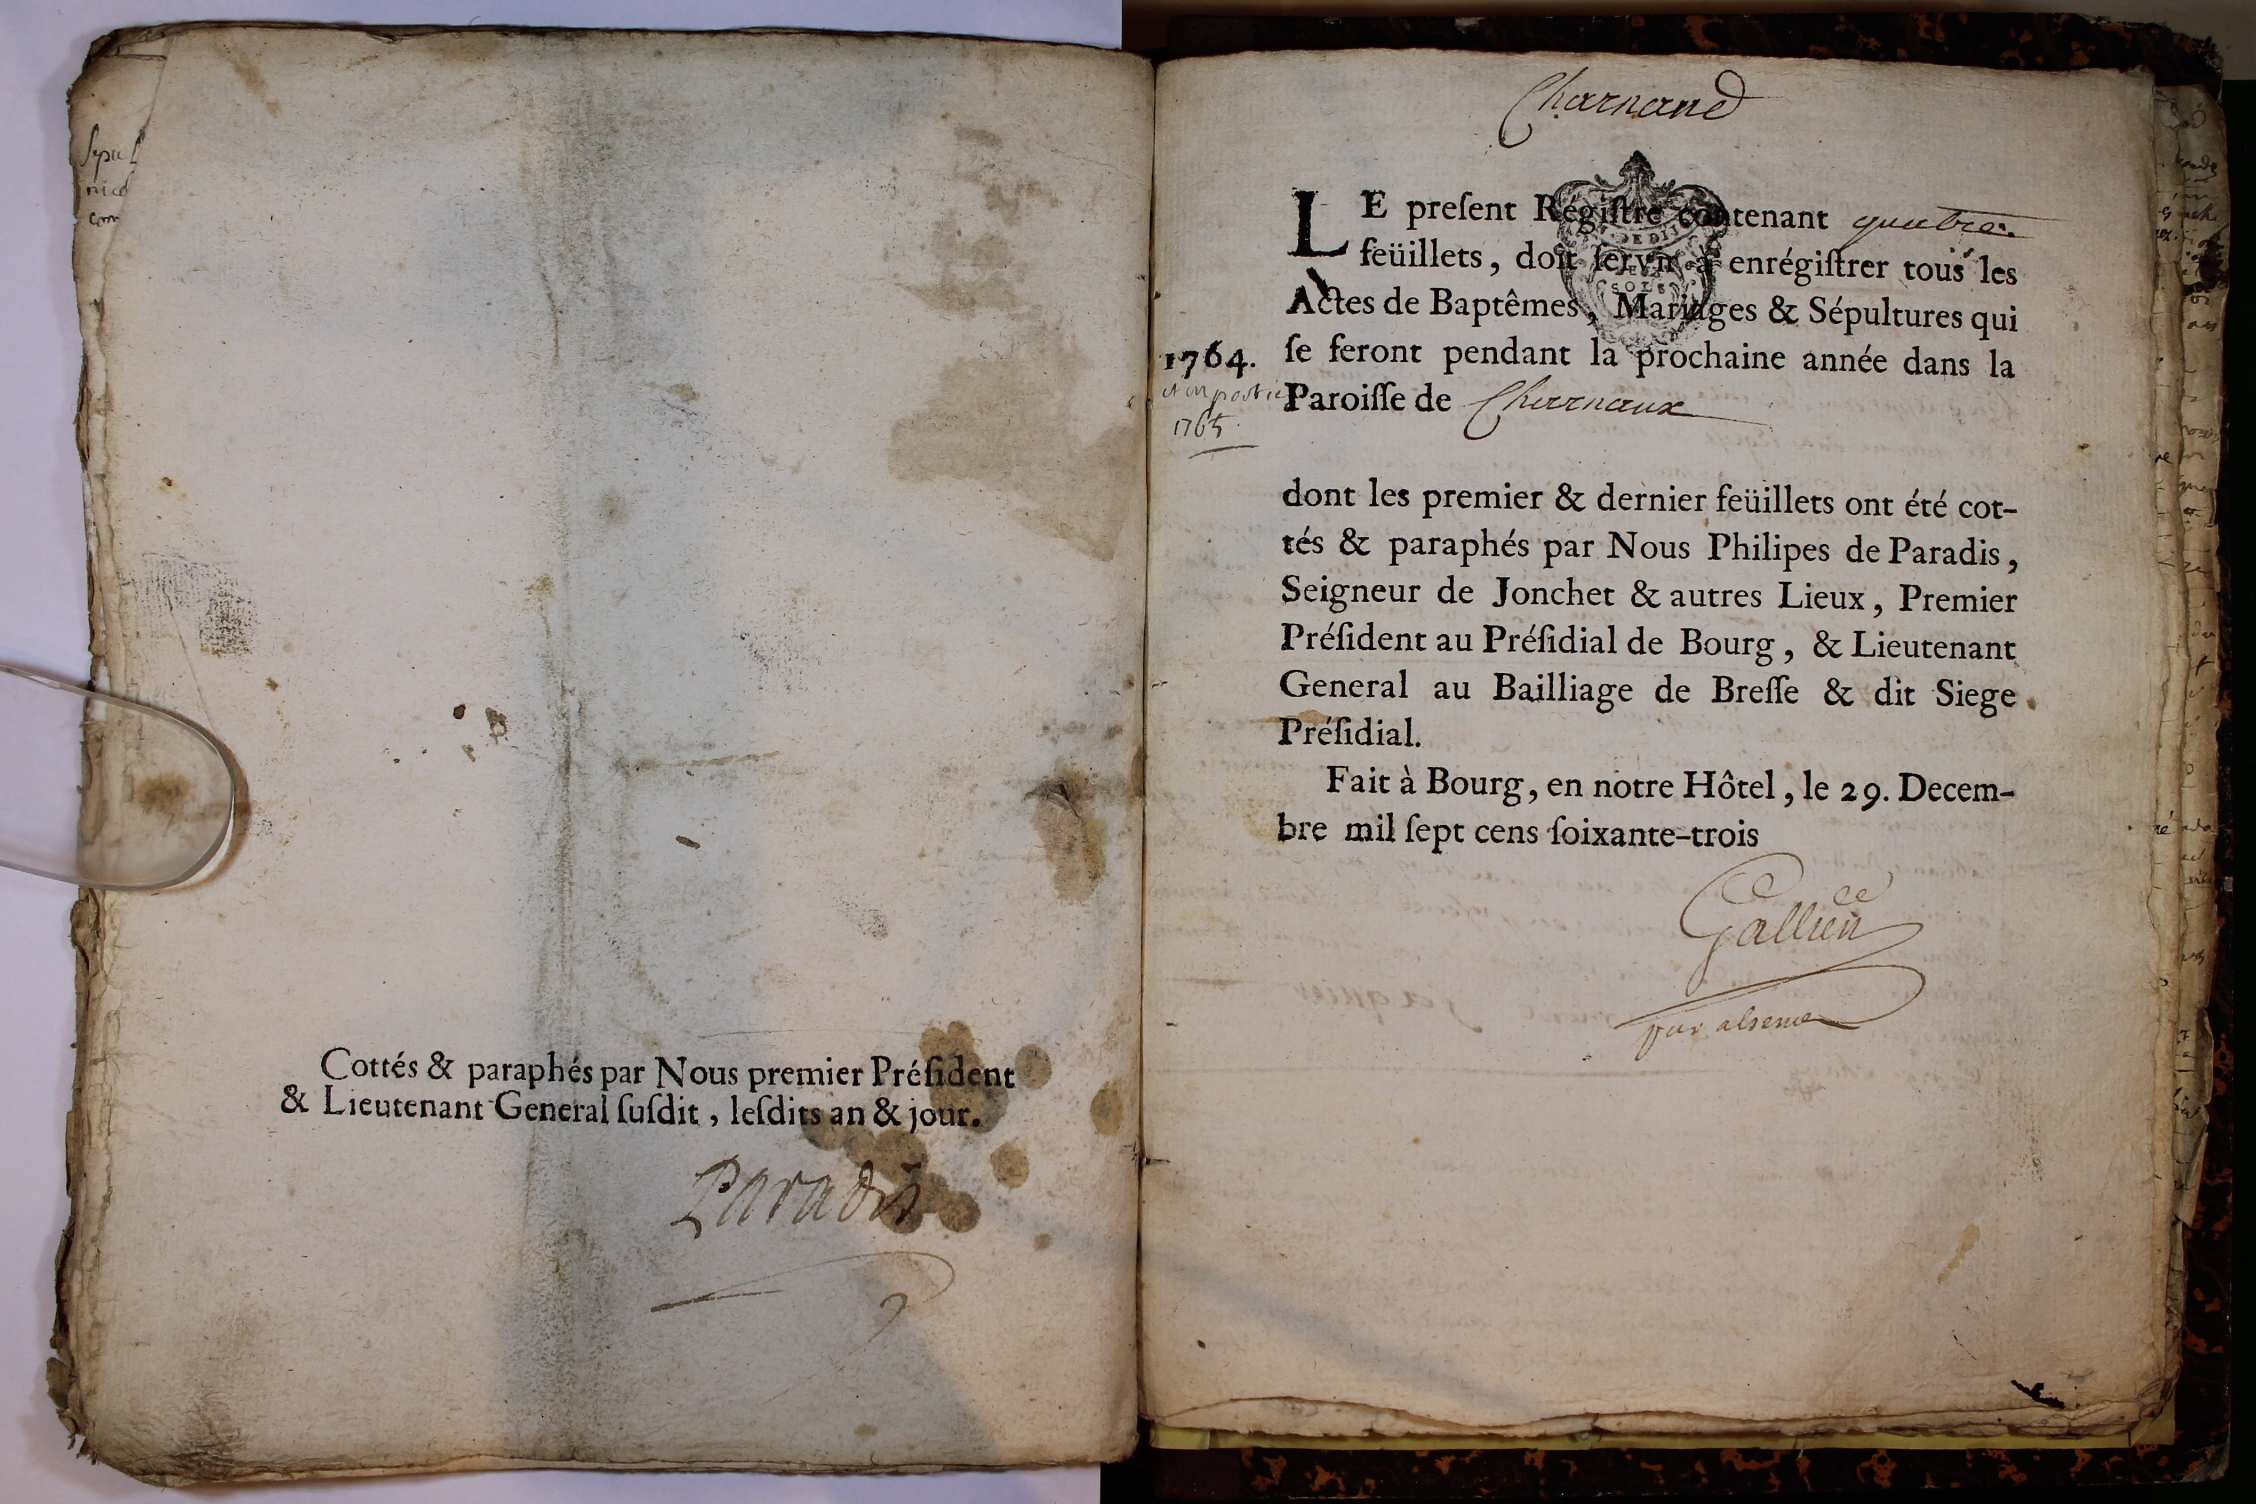 Sepul
nico
com
Cottés & paraphés par Nous premier Préſident
& Lieutenant General ſuſdit, leſdits an & jour.
Paradis
Charnaud
LE preſent Régiſtre contenant quatre
feüillets, doit ſervir à enrégiſtrer tous les
Actes de Baptêmes, Mariages & Sépultures qui
1764. ſe feront pendant la prochaine année dans la
et en partie
Paroiſſe de Charnaux
1765
dont les premier & dernier feüillets ont été cot-
tés & paraphés par Nous Philipes de Paradis,
Seigneur de Jonchet & autres Lieux, Premier
Préſident au Préſidial de Bourg, & Lieutenant
General au Bailliage de Breſſe & dit Siege
Préſidial.
Fait à Bourg, en notre Hôtel, le 29. Decem-
bre mil ſept cens ſoixante-trois
Gallien
par absence